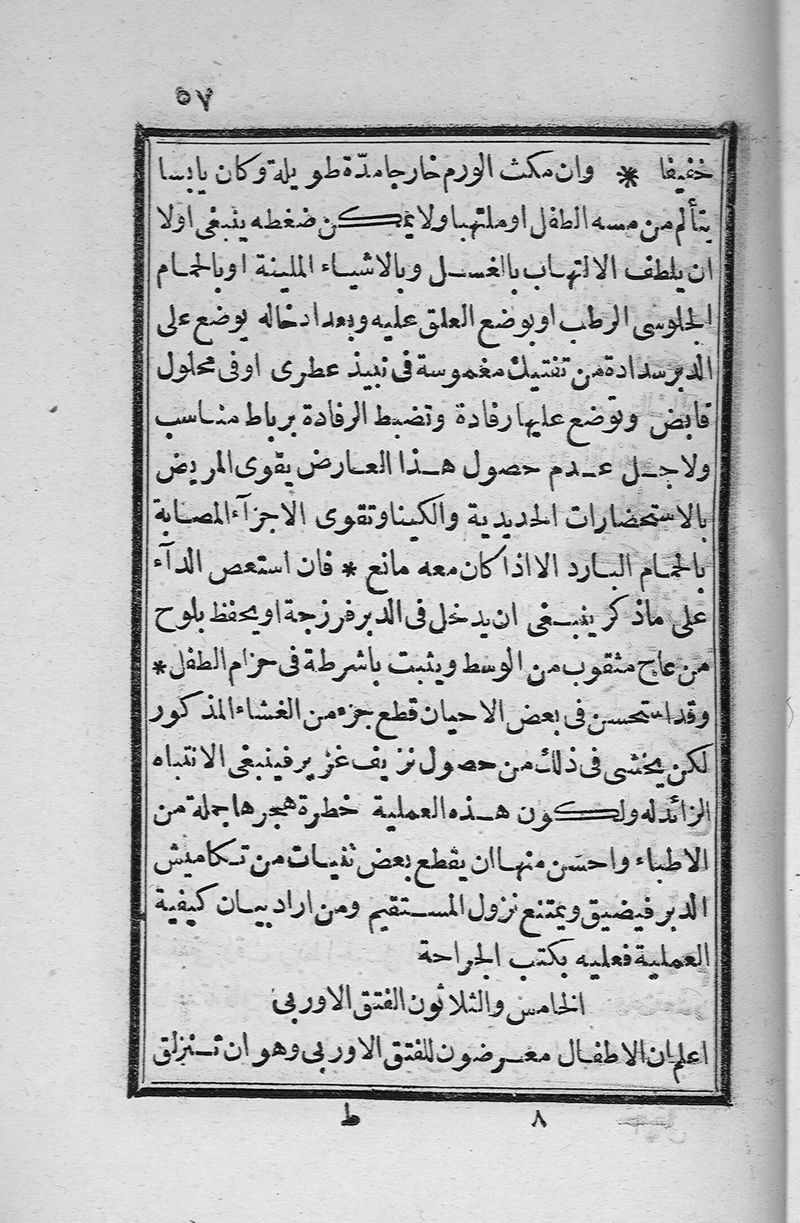 ٥٧
خفيفا * وان مكث الورم خارجا مدّة طويلة وكان يابسا
يتألم من مسه الطفل او ملتهبا ولا يمكن ضغطه ينبغى اولا
ان يلطف الالتهاب بالغسل وبالاشياء الملينة او بالحمام
الجلوسى الرطب او بوضع العلق عليه وبعد ادخاله يوضع على
الدبر سدادة من تفتيك مغموسة فى نبيذ عطرى او فى محلول
قابض وتوضع عليها رفادة وتضبط الرفادة برباط مناسب
ولاجل عدم حصول هذا العارض يقوى المريض
بالاستحضارات الحديدية والكينا وتقوى الاجزآء المصابة
بالحمام البارد الا اذا كان معه مانع * فان استعص الدآء
على ماذكر ينبغى ان يدخل فى الدبر فرزجة او يحفظ بلوح
من عاج مثقوب من الوسط ويثبت باشرطة فى حزام الطفل *
وقد استحسن فى بعض الاحيان قطع جزء من الغشاء المذكور
لكن يخشى فى ذلك من حصول نزيف غزير فينبغى الانتباه
الزائد له ولكون هذه العملية خطرة هجرها جملة من
الاطباء واحسن منها ان يقطع بعض ثنيات من تكاميش
الدبر فيضيق ويمتنع نزول المستقيم ومن اراد بيان كيفية
العملية فعليه بكتب الجراحة
الخامس والثلاثون الفتق الاوربى
اعلم ان الاطفال معرضون للفتق الاوربى وهو ان تنزلق
٨ ط